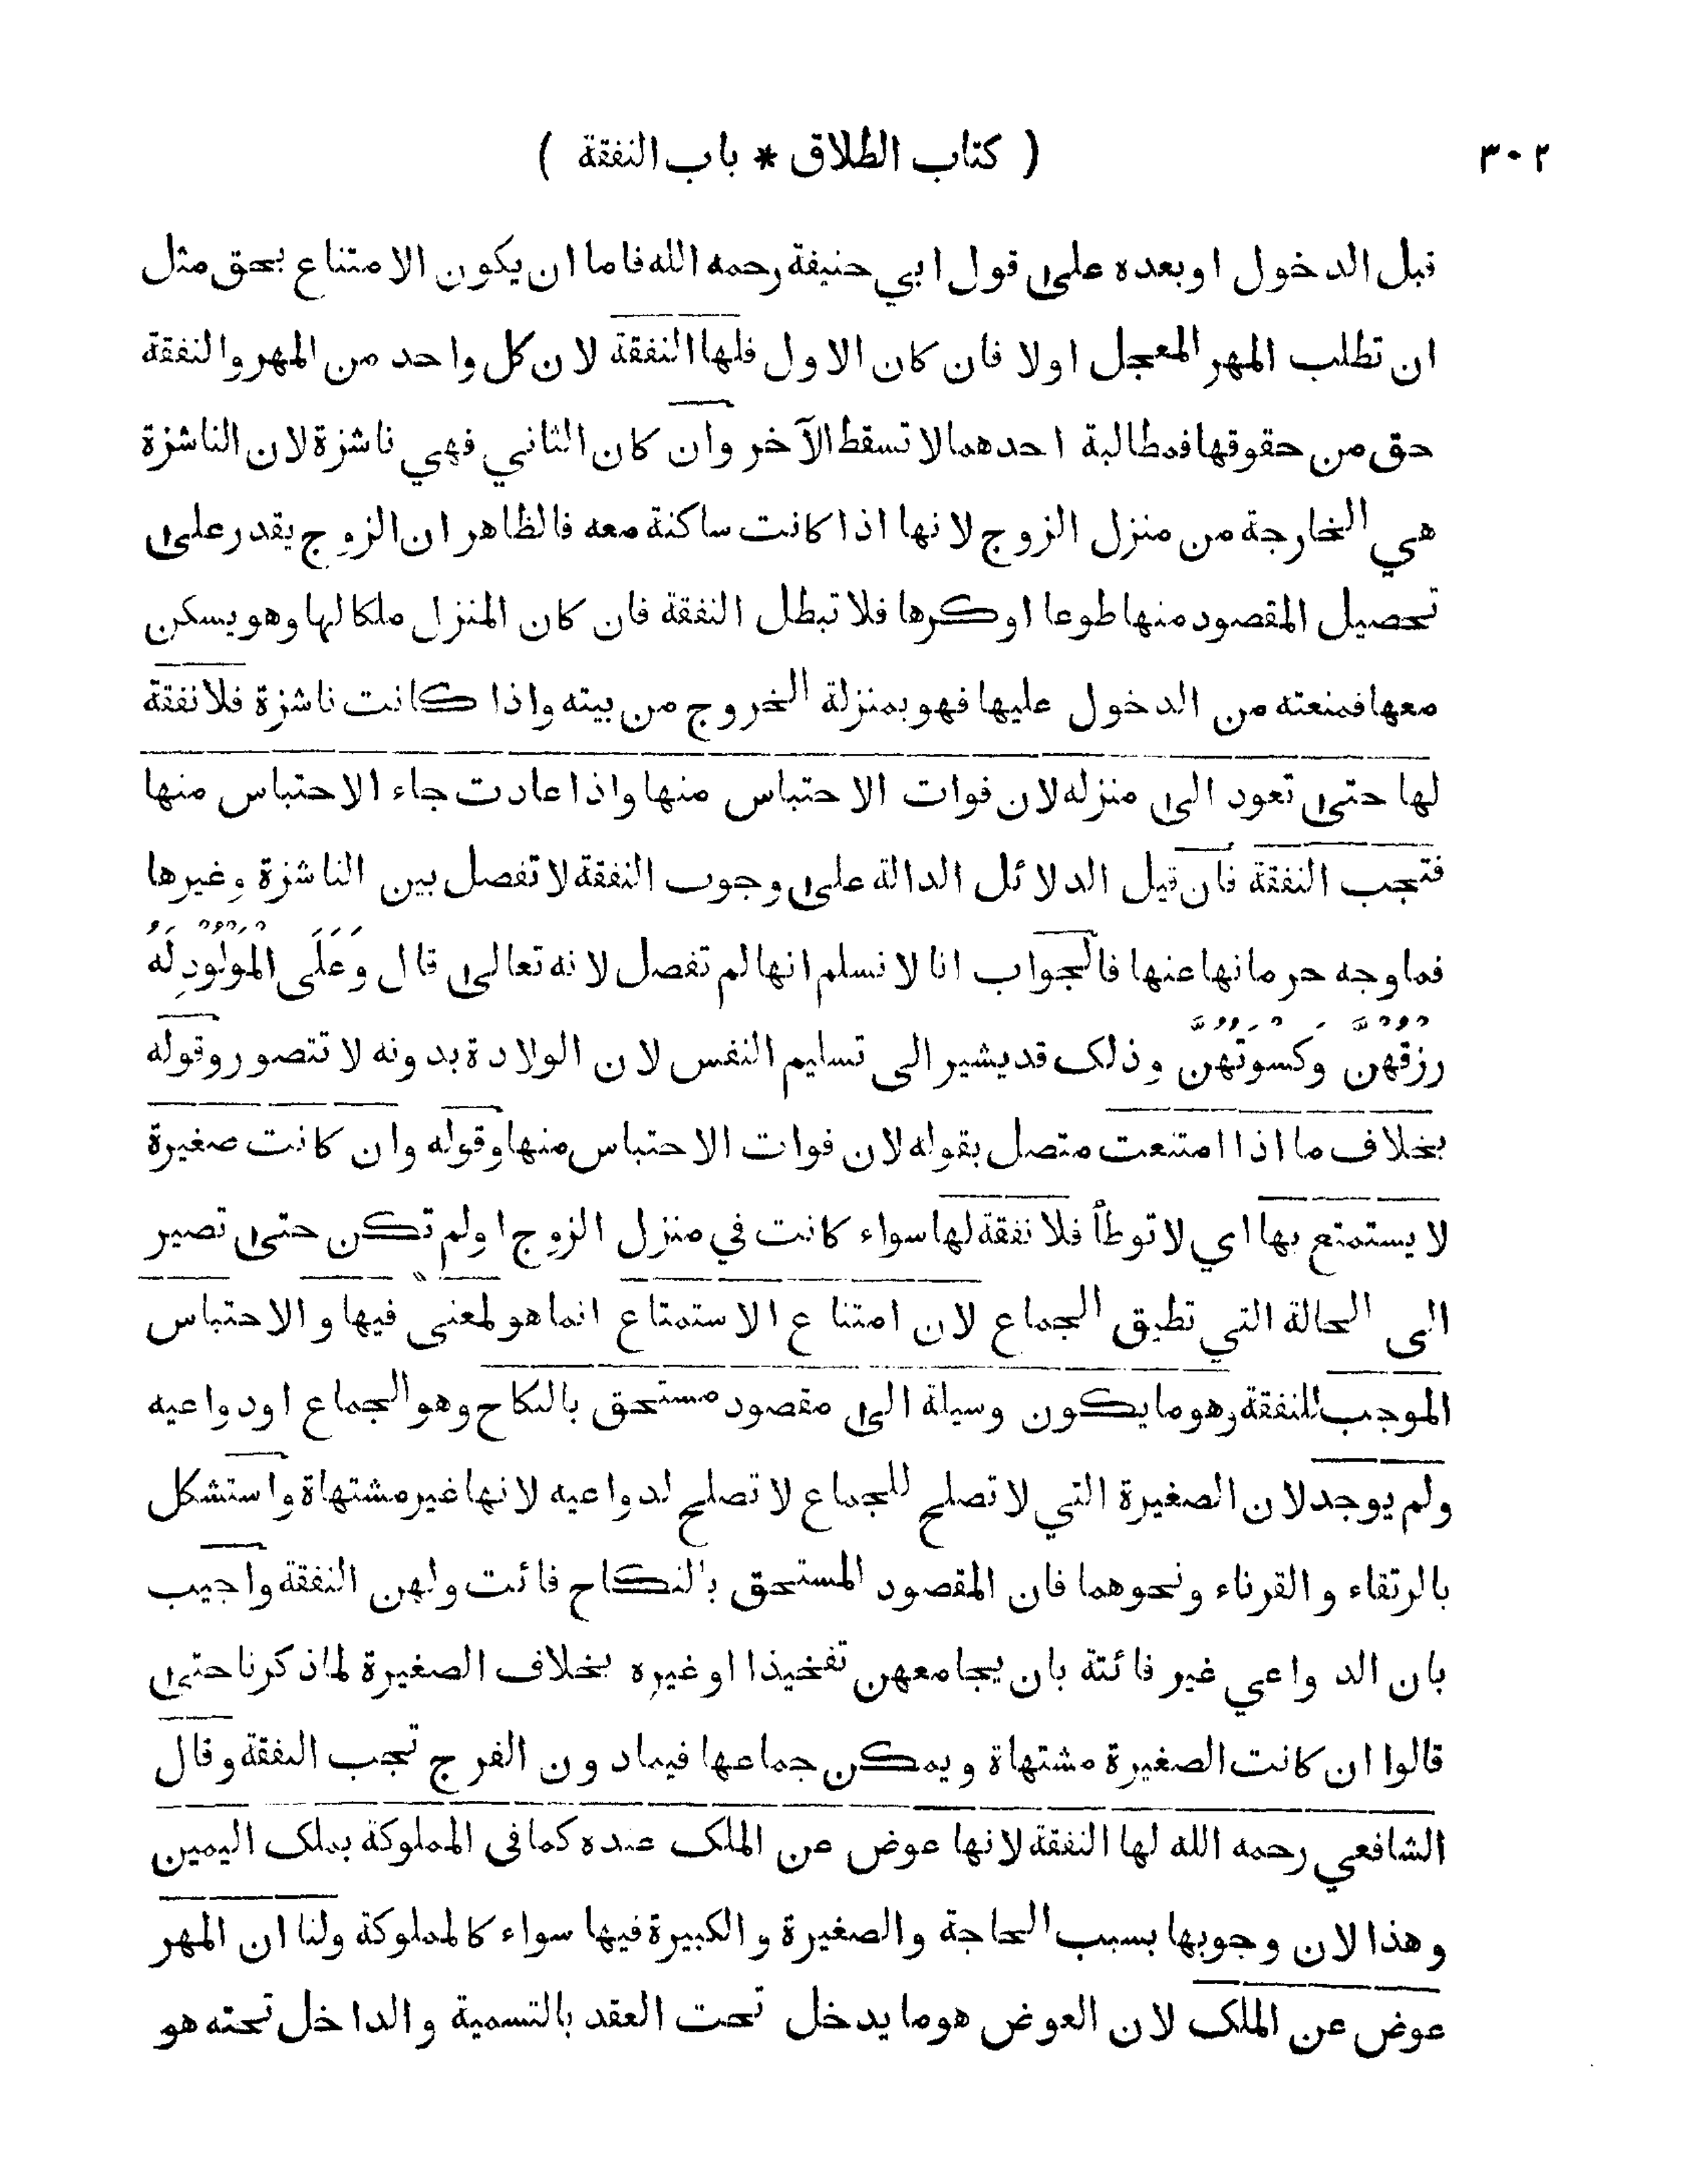 ٣٠٢ ( كتاب الطلاق * باب النفقة )
قبل الدخول او بعده على قول ابي حنيفة رحمه الله فاما ان يكون الامتناع بحق مثل
ان تطلب المهر المعجل اولا فان كان الاول فلها النفقة لان كل واحد من المهر والنفقة
حق من حقوقها فمطالبة احدهما لا تسقط الآخر وان كان الثاني فهي ناشزة لان الناشزة
هي الخارجة من منزل الزوج لانها اذا كانت ساكنة معه فالظاهر ان الزوج يقدر على
تحصيل المقصود منها طوعا او كرها فلا تبطل النفقة فان كان المنزل ملكا لها وهو يسكن
معها فمنعته من الدخول عليها فهو بمنزلة الخروج من بيته واذا كانت ناشزة فلا نفقة
لها حتى تعود الى منزله لان فوات الاحتباس منها واذا عادت جاء الاحتباس منها
فتجب النفقة فان قيل الدلائل الدالة على وجوب النفقة لا تفصل بين الناشزة وغيرها
فما وجه حرمانها عنها فالجواب انا لا نسلم انها لم تفصل لانه تعالى قال وَعَلَى الْمَوْلُوْدِ لَهُ
رِزْقُهُنَّ وَكِسْوَتُهُنَّ وذلك قد يشير الى تسليم النفس لان الولادة بدونه لا تتصور وقوله
بخلاف ما اذا امتنعت متصل بقوله لان فوات الاحتباس منها وقوله وان كانت صغيرة
لا يستمتع بها اي لا توطأ فلا نفقة لها سواء كانت في منزل الزوج اولم تكن حتى تصير
الى الحالة التي تطيق الجماع لان امتناع الاستمتاع انما هو لمعنى فيها والاحتباس
الموجب للنفقة وهو ما يكون وسيلة الى مقصود مستحق بالنكاح وهو الجماع او دواعيه
ولم يوجد لان الصغيرة التي لا تصلح للجماع لا تصلح لدواعيه لانها غير مشتهاة واستشكل
بالرتقاء والقرناء ونحوهما فان المقصود المستحق بالنكاح فائت ولهن النفقة واجيب
بان الدواعي غير فائتة بان يجامعهن تفخيذا او غيره بخلاف الصغيرة لما ذكرنا حتى
قالوا ان كانت الصغيرة مشتهاة ويمكن جماعها فيما دون الفرج تجب النفقة وقال
الشافعي رحمه الله لها النفقة لانها عوض عن الملك عنده كما في المملوكة بملك اليمين
وهذا لان وجوبها بسبب الحاجة والصغيرة والكبيرة فيها سواء كالمملوكة ولنا ان المهر
عوض عن الملك لان العوض هو ما يدخل تحت العقد بالتسمية والداخل تحته هو